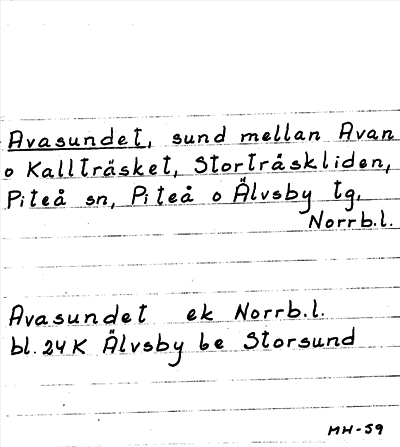 Avasundet, sund mellan Avan
o Kallträsket, Storträskliden,
Piteå sn, Piteå o Älvsby tg,
Norrb.l.
Avasundet ek Norrb.l.
bl. 24K Älvsby be Storsund
MH-59